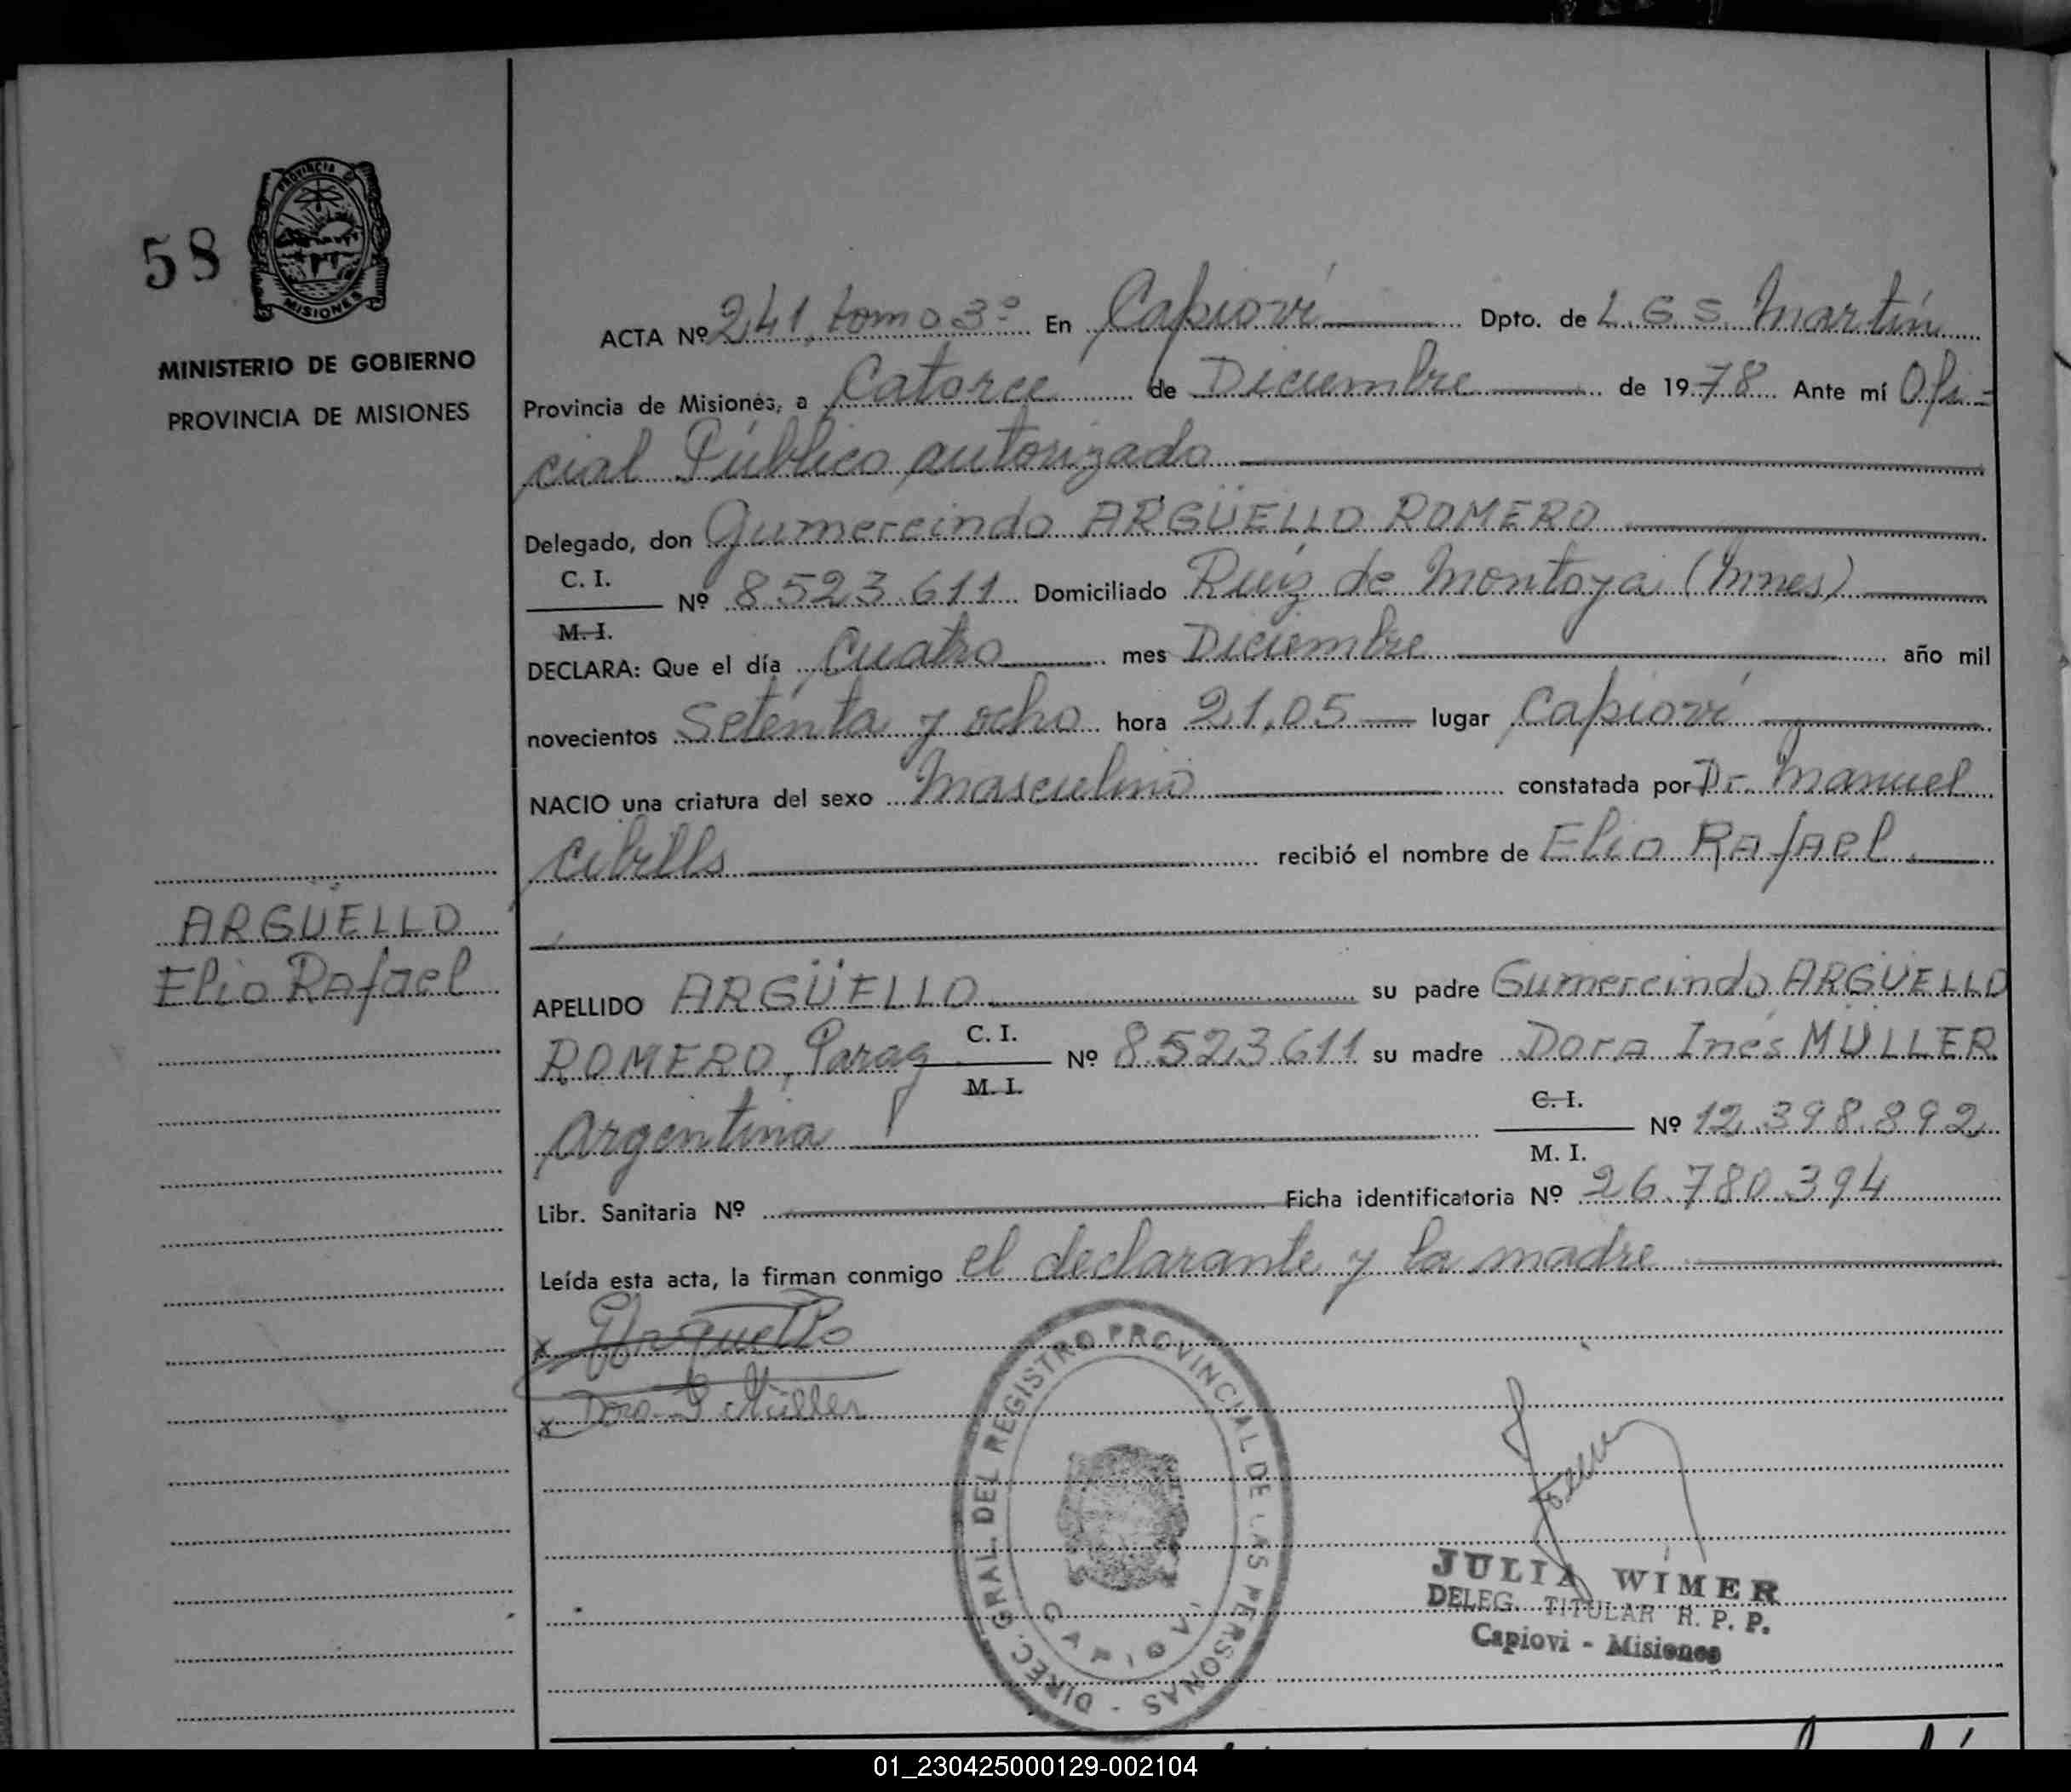 58
PROVINCIA DE
MISIONES
MINISTERIO DE GOBIERNO
PROVINCIA DE MISIONES
ARGÜELLO
Elio Rafael
ACTA Nº 241, tomo 3º En Capioví Dpto. de L. G. S. Martín
Provincia de Misiones, a Catorce de Diciembre de 1978 Ante mí Ofi-
cial Público autorizado
Delegado, don Gumercindo ARGÜELLO ROMERO
C. I.
Nº 8523.611 Domiciliado Ruíz de Montoya (Mnes)
M. I.
DECLARA: Que el día Cuatro mes Diciembre año mil
novecientos Setenta y ocho hora 21,05 lugar Capioví
NACIO una criatura del sexo Masculino constatada por Dr. Manuel
Cibills recibió el nombre de Elio RAfAel
APELLIDO ARGÜELLO su padre Gumercindo ARGÜELLO
ROMERO, Parag C. I. Nº 8.523611 su madre Dora Inés MÜLLER
M. I.
Argentina C. I. Nº 12.398.892
M. I.
Libr. Sanitaria Nº Ficha identificatoria Nº 26.780.394
Leída esta acta, la firman conmigo el declarante y la madre
x GArguello
x Dora I Müller
DIREC. GRAL. DEL REGISTRO PROVINCIAL DE LAS PERSONAS -
CAPIOVI
JULIA WIMER
DELEG. TITULAR R. P. P.
Capiovi - Misiones
01_230425000129-002104